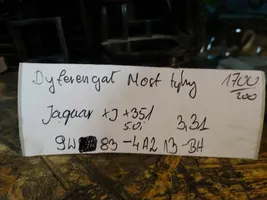 Dyferengat Most tylny 1700
200
Jaquar XJ X351
5.0i 3,31
9W 83-4A213-BH